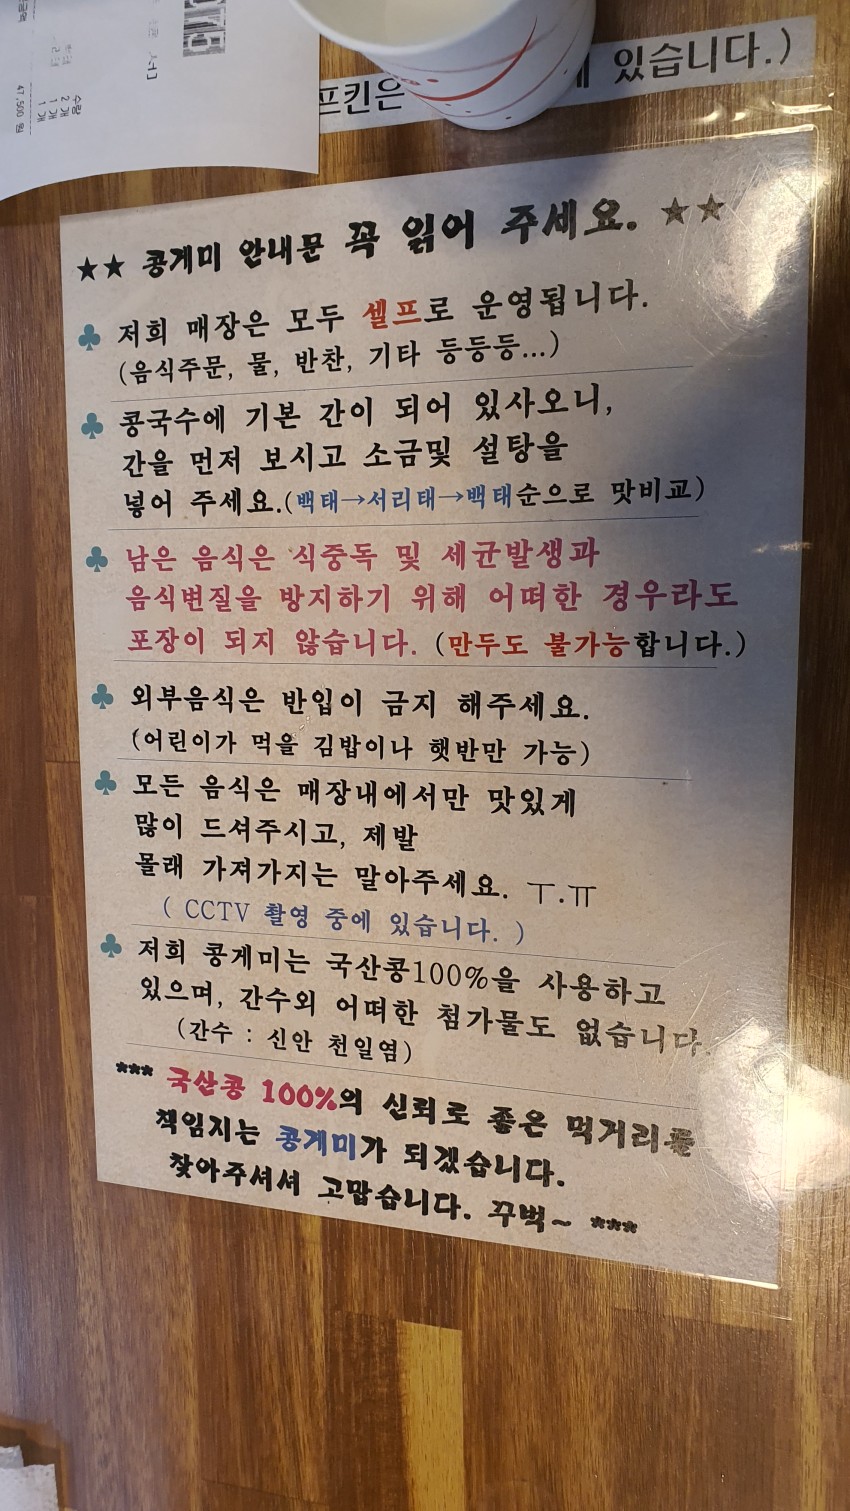 수량
2 개
1 개
1 개
47,500 원
프킨은
있습니다.)
★★ 콩게미 안내문 꼭 읽어 주세요. ★★
♣ 저희 매장은 모두 셀프로 운영됩니다.
(음식주문, 물, 반찬, 기타 등등등...)
♣ 콩국수에 기본 간이 되어 있사오니,
간을 먼저 보시고 소금및 설탕을
넣어 주세요.(백태→서리태→백태순으로 맛비교)
♣ 남은 음식은 식중독 및 세균발생과
음식변질을 방지하기 위해 어떠한 경우라도
포장이 되지 않습니다. (만두도 불가능합니다.)
♣ 외부음식은 반입이 금지 해주세요.
(어린이가 먹을 김밥이나 햇반만 가능)
♣ 모든 음식은 매장내에서만 맛있게
많이 드셔주시고, 제발
몰래 가져가지는 말아주세요. ㅜ.ㅠ
( CCTV 촬영 중에 있습니다. )
♣ 저희 콩게미는 국산콩100%을 사용하고
있으며, 간수외 어떠한 첨가물도 없습니다.
(간수 : 신안 천일염)
*** 국산콩 100%의 신뢰로 좋은 먹거리를
책임지는 콩게미가 되겠습니다.
찾아주셔서 고맙습니다. 꾸벅~ ***